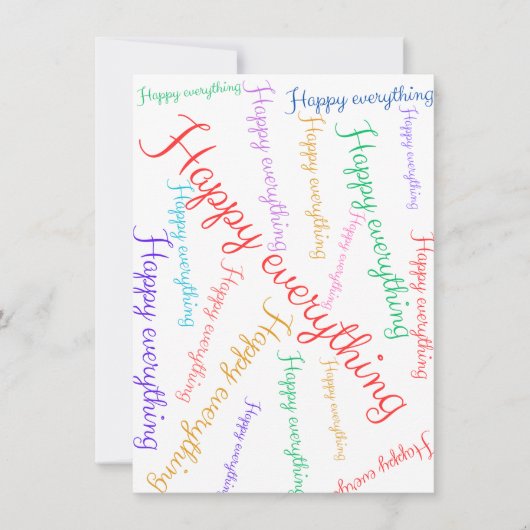 Happy everything
Happy everything
Happy everything
Happy everything
Happy everything
Happy everything
Happy everything
Happy everything
Happy everything
Happy everything
Happy everything
Happy everything
Happy everything
Happy everything
Happy everything
Happy everything
Happy everything